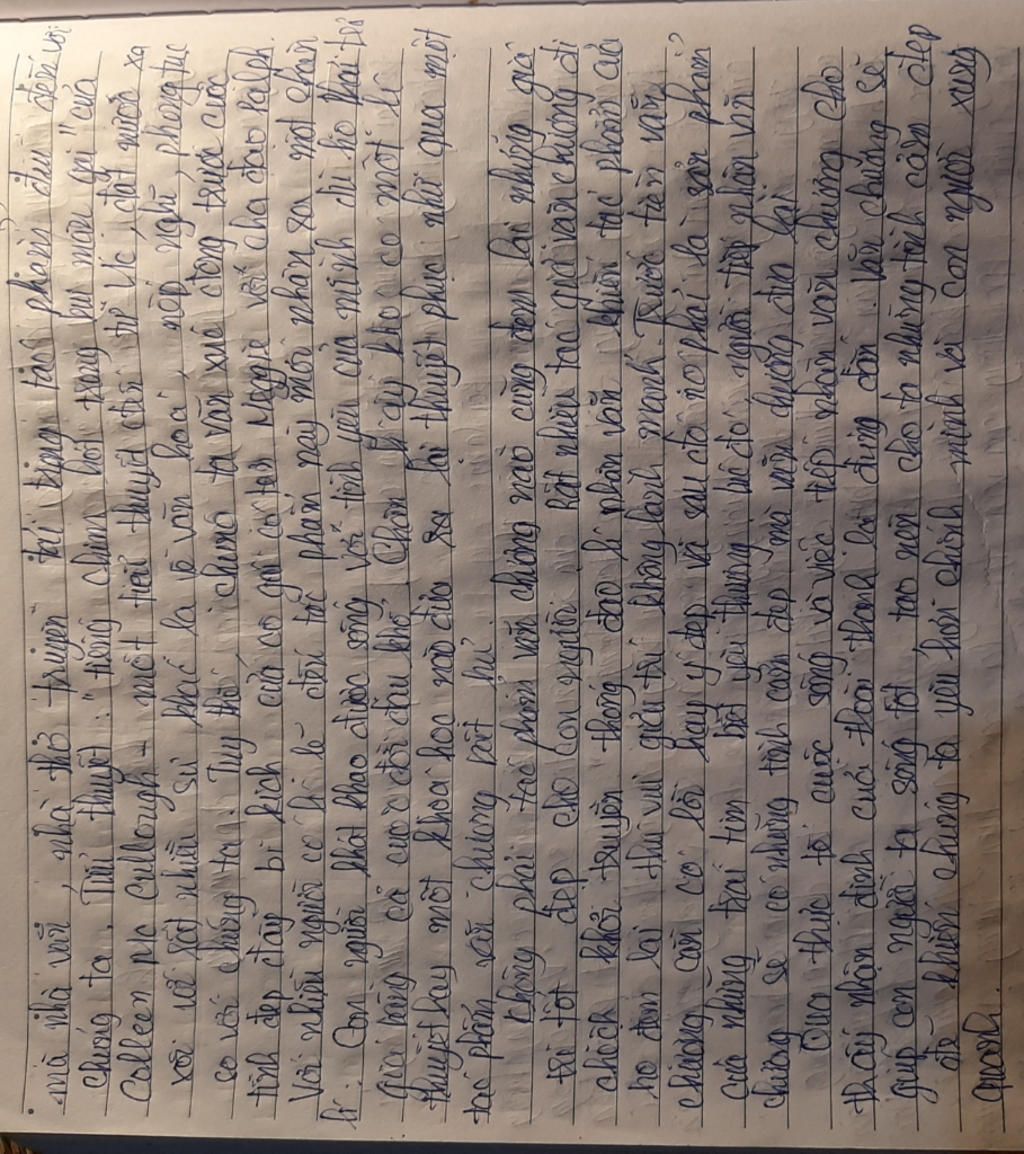 mà nhà văn, nhà thơ "truyện" tải trong tác phẩm đưa đến với
chúng ta. Tiểu thuyết: "tiếng chim hót trong bụi mận gai" của
Colleen Mc Cullough - một tiểu thuyết đến từ Úc, đất nước xa
xôi với rất nhiều sự khác lạ về văn hoá, nếp nghĩ, phong tục
so với chúng ta. Tuy thế, chúng ta vẫn xúc động trước cuộc
tình đẹp đầy bi kịch của cô gái có tên Meggie với cha đạo Ralph.
Với nhiều người có lẽ đến tác phẩm này môi nhân sa một chân
lí. Con người khát khao được sống với tình yêu của mình dù họ phải trả
giá bằng cả cuộc đời đau khổ. Chân lí ấy khó có một lí
thuyết hay một khoa học nào đưa ra lại thuyết phục như qua một
tác phẩm văn chương kiệt
Không phải tác phẩm văn chương nào cũng đem lại những giá
trị tốt đẹp cho con người. Rất nhiều tác giả văn chương đi
chệch khỏi truyền thống đạo lí phần văn khiến tác phẩm của
họ đem lại thú vui giải trí không lành mạnh. Trước tiên văn
chương cần có lời hay ý đẹp và sau đó nó phải là sản phẩm
của những trái tim biết yêu thương, khi đó người tiếp nhận văn
chương sẽ có những tình cảm đẹp mà văn chương đưa lại.
Qua thực tế cuộc sống và việc tiếp nhận văn chương cho
thấy nhận định của Hoài Thanh là đúng đắn. Văn chương sẽ
giúp con người ta sống tốt, tạo nên cho ta những tình cảm đẹp
để khiến chúng ta yêu hơn chính mình và con người xung
quanh.